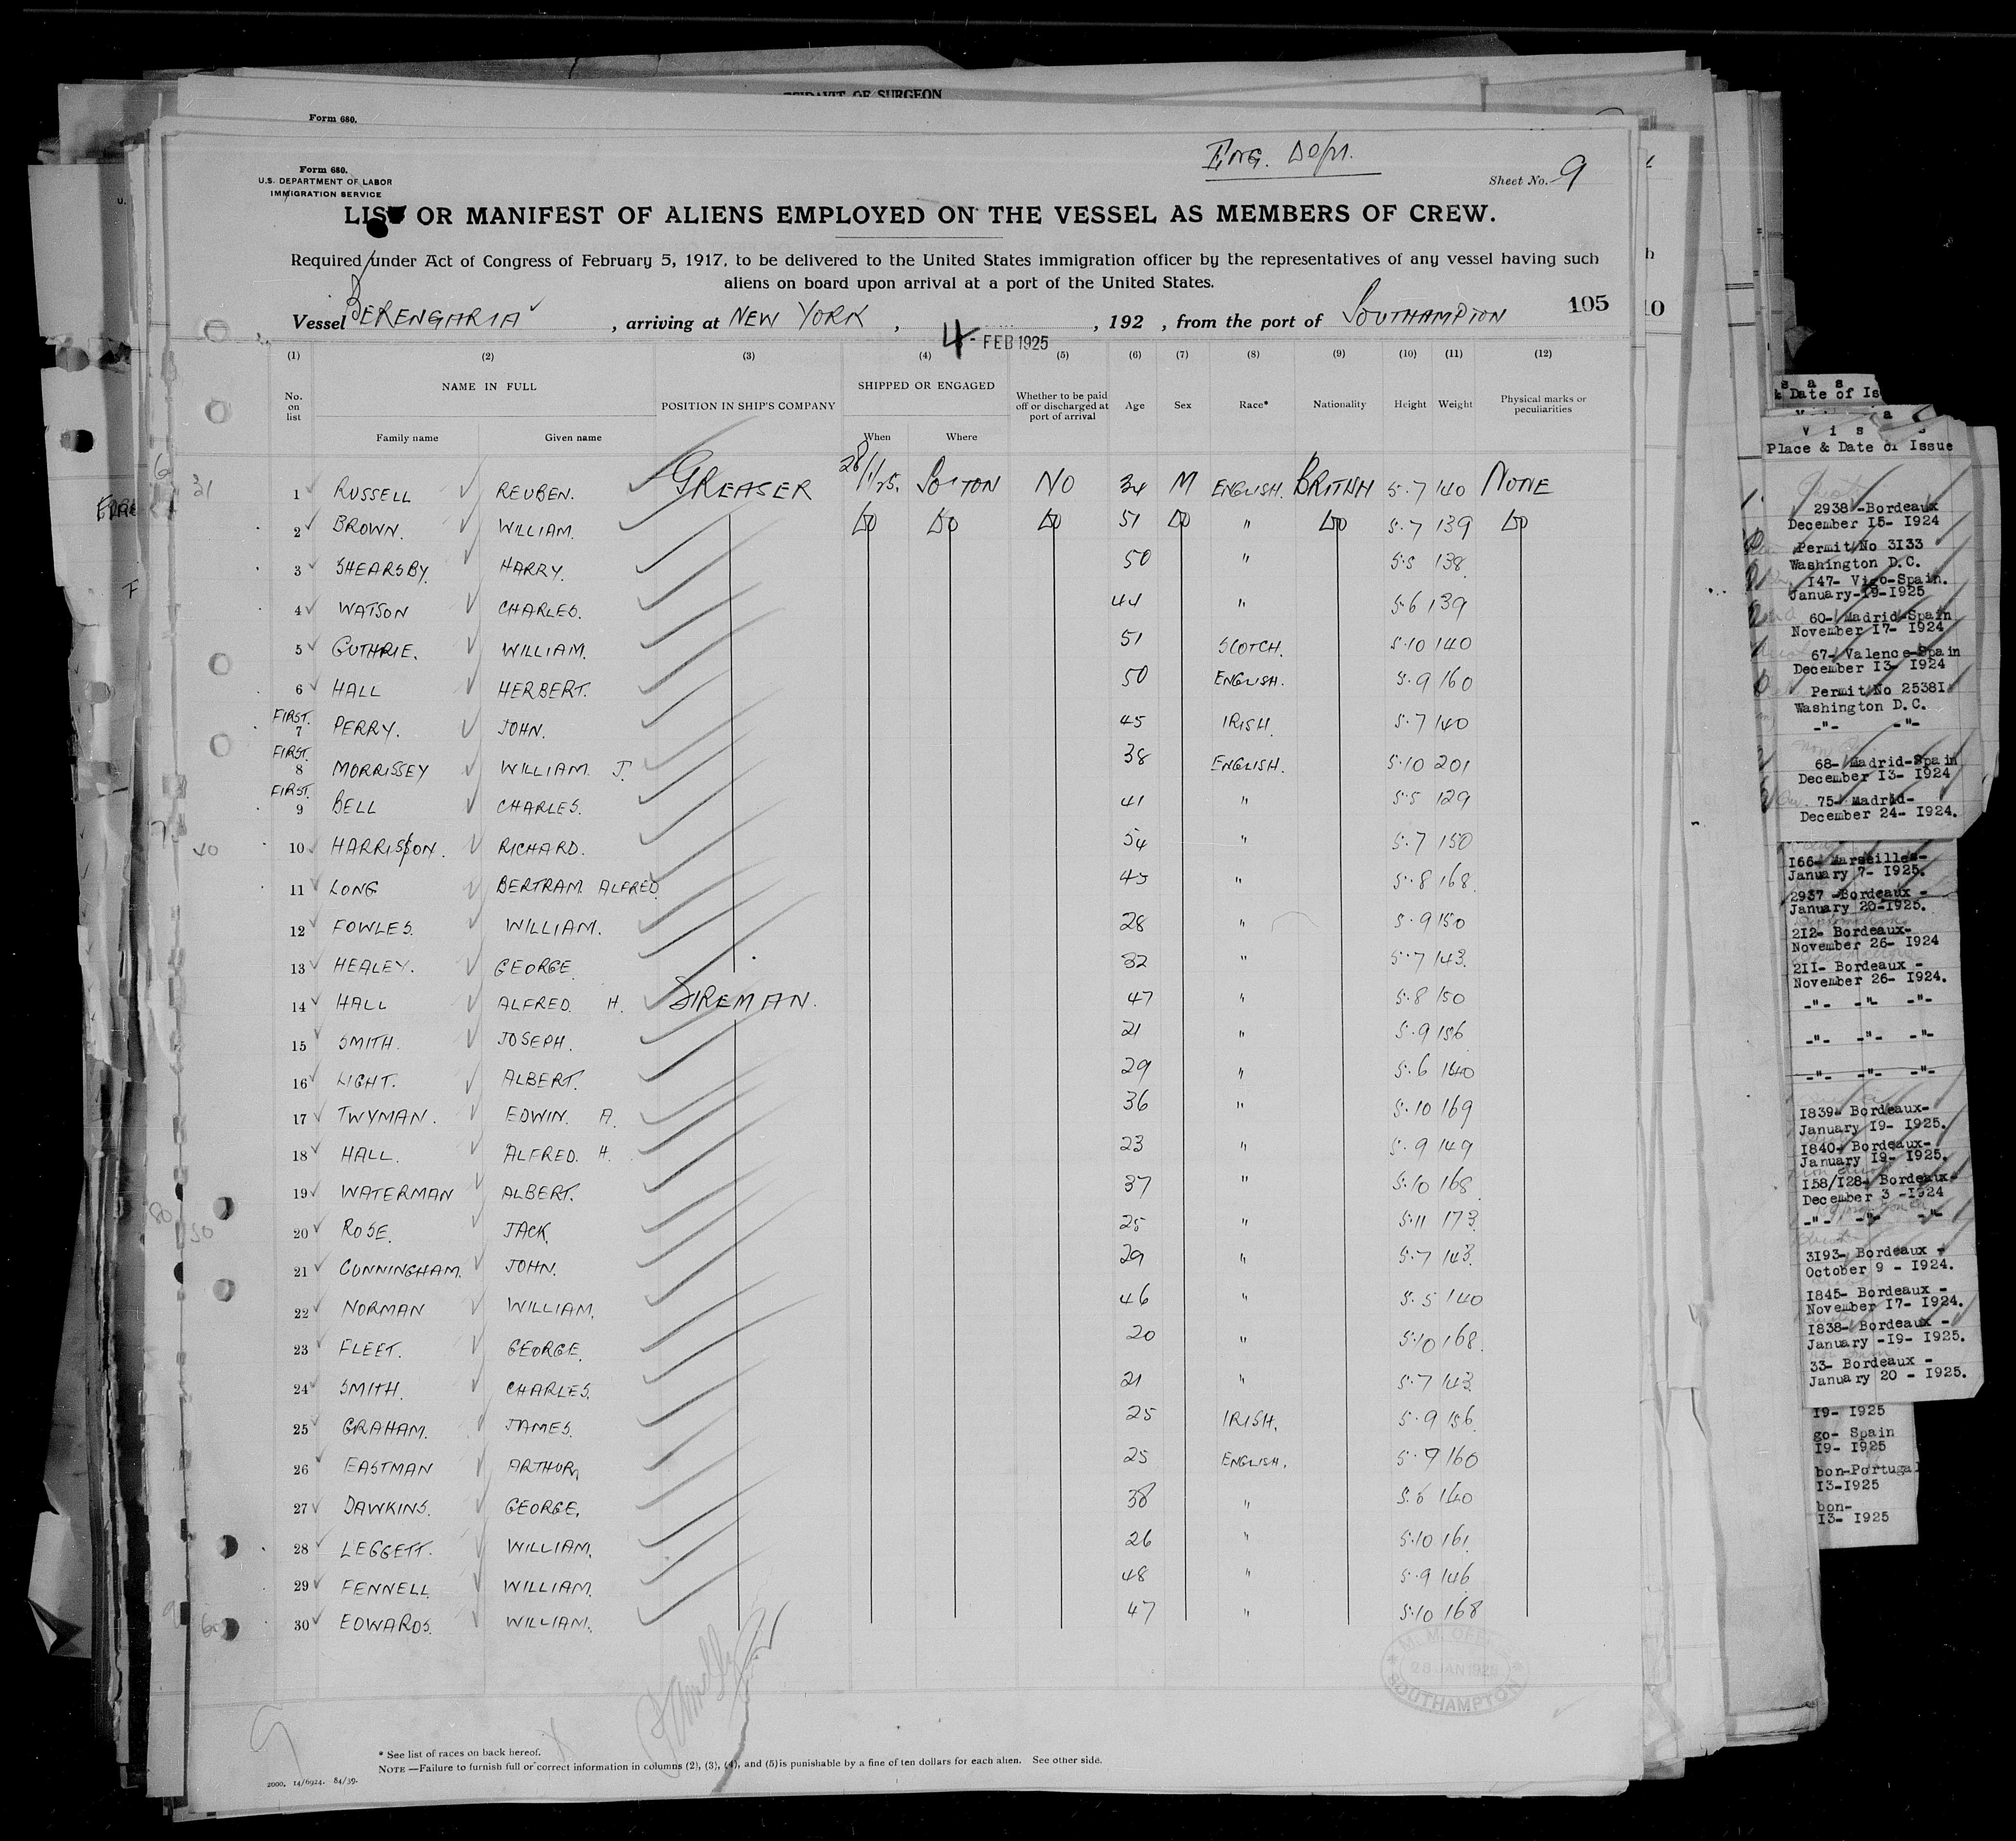 AFFIDAVIT OF SURGEON
Form 680.
ENG. Dept.
Form 680.
U.S. DEPARTMENT OF LABOR
IMMIGRATION SERVICE
Sheet No. 9
LIST OR MANIFEST OF ALIENS EMPLOYED ON THE VESSEL AS MEMBERS OF CREW.
Required under Act of Congress of February 5, 1917, to be delivered to the United States immigration officer by the representatives of any vessel having such
aliens on board upon arrival at a port of the United States.
105
Vessel BERENGARIA, arriving at NEW YORK, 4 - FEB 1925, 192 , from the port of SOUTHAMPTON
(1) (2) (3) (4) (5) (6) (7) (8) (9) (10) (11) (12)
No. on list NAME IN FULL POSITION IN SHIP'S COMPANY SHIPPED OR ENGAGED Whether to be paid off or discharged at port of arrival Age Sex Race* Nationality Height Weight Physical marks or peculiarities
Family name Given name When Where
1 RUSSELL REUBEN. GREASER 28/1/25. SO'TON NO 34 M ENGLISH. BRITISH 5.7 140 NONE
2 BROWN. WILLIAM. DO DO DO 51 DO " DO 5.7 139 DO
3 SHEARSBY. HARRY. 50 " 5.5 138.
4 WATSON CHARLES. 44 " 5.6 139
5 GUTHRIE. WILLIAM. 51 SCOTCH. 5.10 140
6 HALL HERBERT. 50 ENGLISH. 5.9 160
FIRST. 7 PERRY. JOHN. 45 IRISH. 5.7 140
FIRST. 8 MORRISSEY WILLIAM J. 38 ENGLISH. 5.10 201
FIRST. 9 BELL CHARLES. 41 " 5.5 129
10 HARRISON. RICHARD. 54 " 5.7 150
11 LONG BERTRAM ALFRED 45 " 5.8 168.
12 FOWLES. WILLIAM. 28 " 5.9 150
13 HEALEY. GEORGE. 32 " 5.7 143.
14 HALL ALFRED. H. FIREMAN. 47 " 5.8 150
15 SMITH. JOSEPH. 21 " 5.9 156
16 LIGHT. ALBERT. 29 " 5.6 140
17 TWYMAN. EDWIN. A. 36 " 5.10 169
18 HALL. ALFRED. H. 23 " 5.9 149
19 WATERMAN ALBERT. 37 " 5.10 168.
20 ROSE. JACK. 25 " 5.11 173.
21 CUNNINGHAM. JOHN. 29 " 5.7 143.
22 NORMAN WILLIAM. 46 " 5.5 140
23 FLEET. GEORGE. 20 " 5.10 168.
24 SMITH. CHARLES. 21 " 5.7 143.
25 GRAHAM. JAMES. 25 IRISH. 5.9 156.
26 EASTMAN ARTHUR. 25 ENGLISH. 5.9 160
27 DAWKINS. GEORGE. 38 " 5.6 140
28 LEGGETT. WILLIAM. 26 " 5.10 161.
29 FENNELL WILLIAM. 48 " 5.9 146.
30 EDWARDS. WILLIAM. 47 " 5.10 168
M. M. OFFICE
28 JAN 1925
SOUTHAMPTON
* See list of races on back hereof.
NOTE —Failure to furnish full or correct information in columns (2), (3), (4), and (5) is punishable by a fine of ten dollars for each alien. See other side.
2000. 14/6924. 84/39.
& Date of Is
V i s
Place & Date of Issue
2938 -Bordeaux
December 15- 1924
Permit No 3133
Washington D.C.
147- Vigo-Spain.
January-19-1925
60- Madrid-Spain
November 17- 1924
67- Valence-Spain
December 13- 1924
Permit No 25381
Washington D.C.
-"- -"-
68- Madrid-Spain
December 13- 1924
75- Madrid-
December 24- 1924.
166- Marseilles-
January 7- 1925.
2937 -Bordeaux -
January 20-1925.
212- Bordeaux-
November 26- 1924
211- Bordeaux -
November 26- 1924.
-"- -"- -"-
-"- -"-
-"- -"- -"-
1839- Bordeaux-
January 19- 1925.
1840- Bordeaux-
January 19- 1925.
158/128- Bordeaux-
December 3 -1924
-"- -"- -"-
3193- Bordeaux -
October 9 - 1924.
1845- Bordeaux -
November 17- 1924.
1838- Bordeaux -
January -19- 1925.
33- Bordeaux -
January 20 - 1925.
19- 1925
go- Spain
19- 1925
bon-Portugal
13-1925
bon-
13- 1925